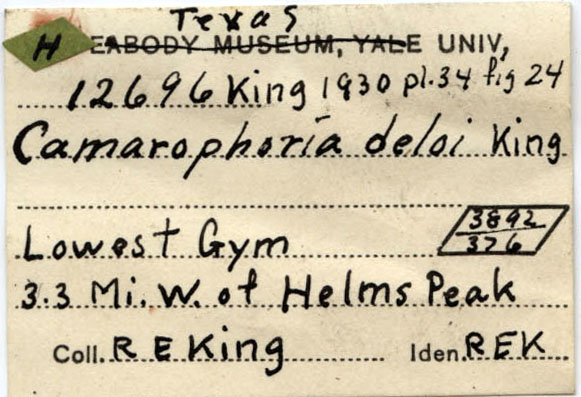 Texas
H PEABODY MUSEUM, YALE UNIV,
12696 King 1930 pl.34 fig 24
Camarophoria deloi King
Lowest Gym 3892
376
3.3 Mi. W. of Helms Peak
Coll. R E King Iden. REK